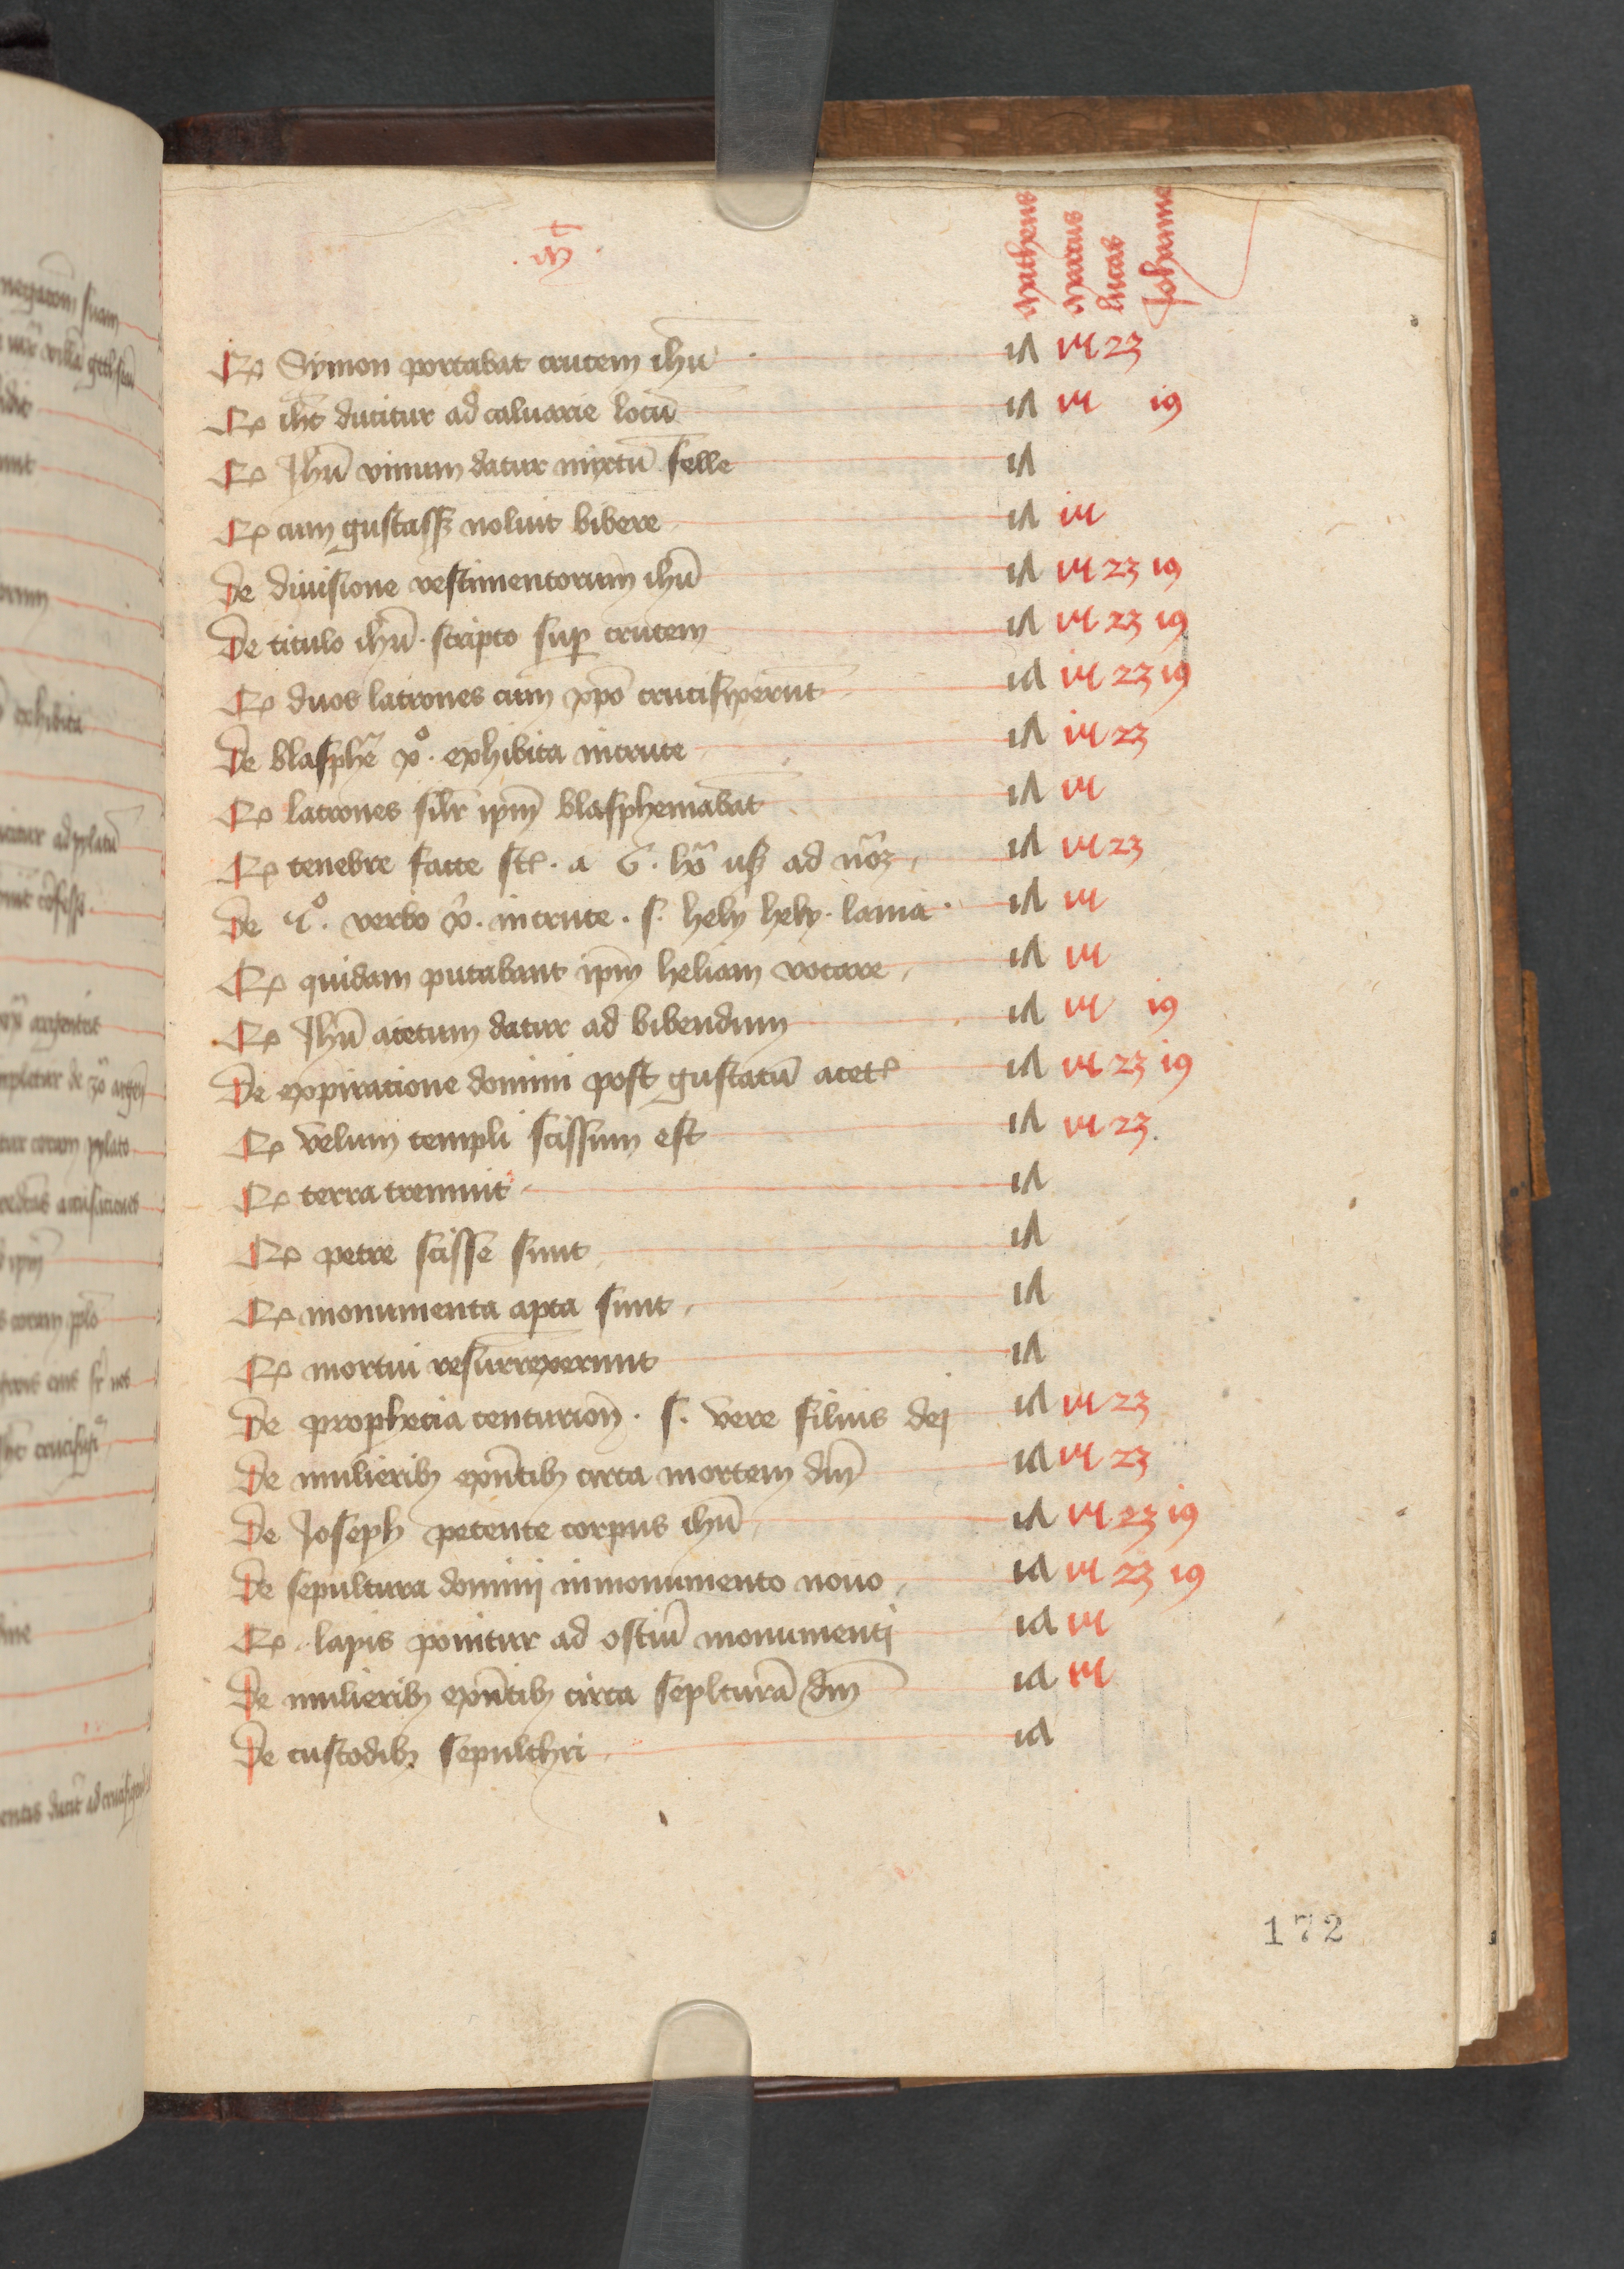 Mt
Matheus Marcus Lucas Johannes
Qd Symon portabat crucem ihu 27 15 23
Qd ihc ducitur ad caluarie locū 27 15 19
Qd Jhū vinum datur mixtū felle 27
Qd cum gustassꝫ noluit bibere 27 15
De diuisione vestimentorum ihū 27 15 23 19
De titulo ihū · scripto suꝑ crucem 27 15 23 19
Qd duos latrones cum xpo crucifixerūt 27 15 23 19
De blasphē xº · exhibita in cruce 27 15 23
Qd latrones silr ipm̄ blasphemabāt 27 15
Qd tenebre facte st · a 6 · hō usqꝫ ad nōꝫ 27 15 23
De 4º · verbo x̄ · in cruce · s · hely hely · lama · 27 15
Qd quidam putabant ipm̄ heliam vocare 27 15
Qd Jhū acetum datur ad bibendum 27 15 19
De expiracione domini post gustatū acet 27 15 23 19
Qd velum templi scissum est 27 15 23
Qd terra tremuit 27
Qd petre scisse sunt 27
Qd monumenta apta sunt 27
Qd mortui resurrexerunt 27
De prophecia centurioñ · s · vere filius dej 27 15 23
De mulieribꝫ exñtibꝫ circa mortem dn̄j 27 15 23
De Joseph petente corpus ihū 27 15 23 19
De sepultura dominj in monumento nouo 27 15 23 19
Qd lapis ponitur ad ostiū monumentj 27 15
De mulieribꝫ exñtibꝫ circa seplturā dn̄j 27 15
De custodibꝫ sepulchri 27
172